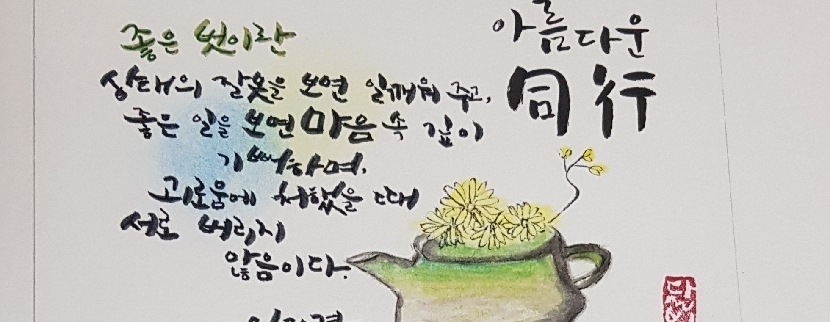 아름다운
同行
좋은 벗이란
상대의 잘못을 보면 일깨워 주고,
좋은 일을 보면 마음 속 깊이
기뻐하며,
괴로움에 처했을 때
서로 버리지
않음이다.